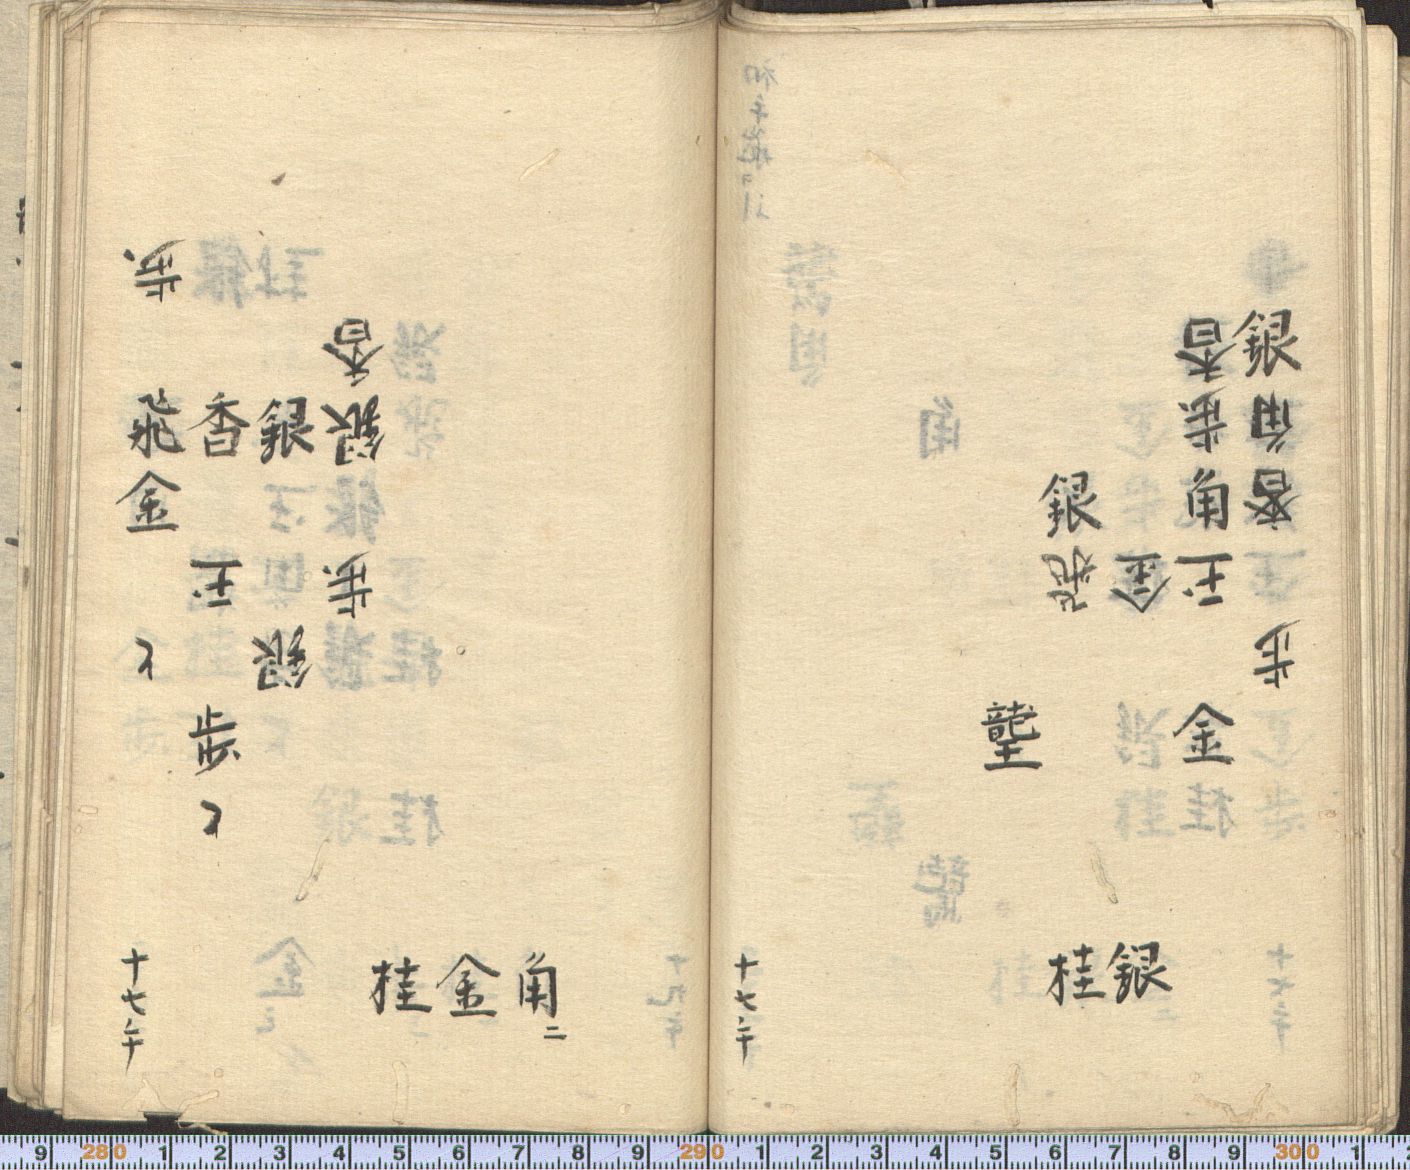 銀角香歩
香歩角玉金桂
金
銀飛
壟
銀桂
十七手
香銀歩
銀銀
香玉歩と
歩飛金と
角二金桂
十七手
9 280 1 2 3 4 5 6 7 8 9 290 1 2 3 4 5 6 7 8 9 300 1 2